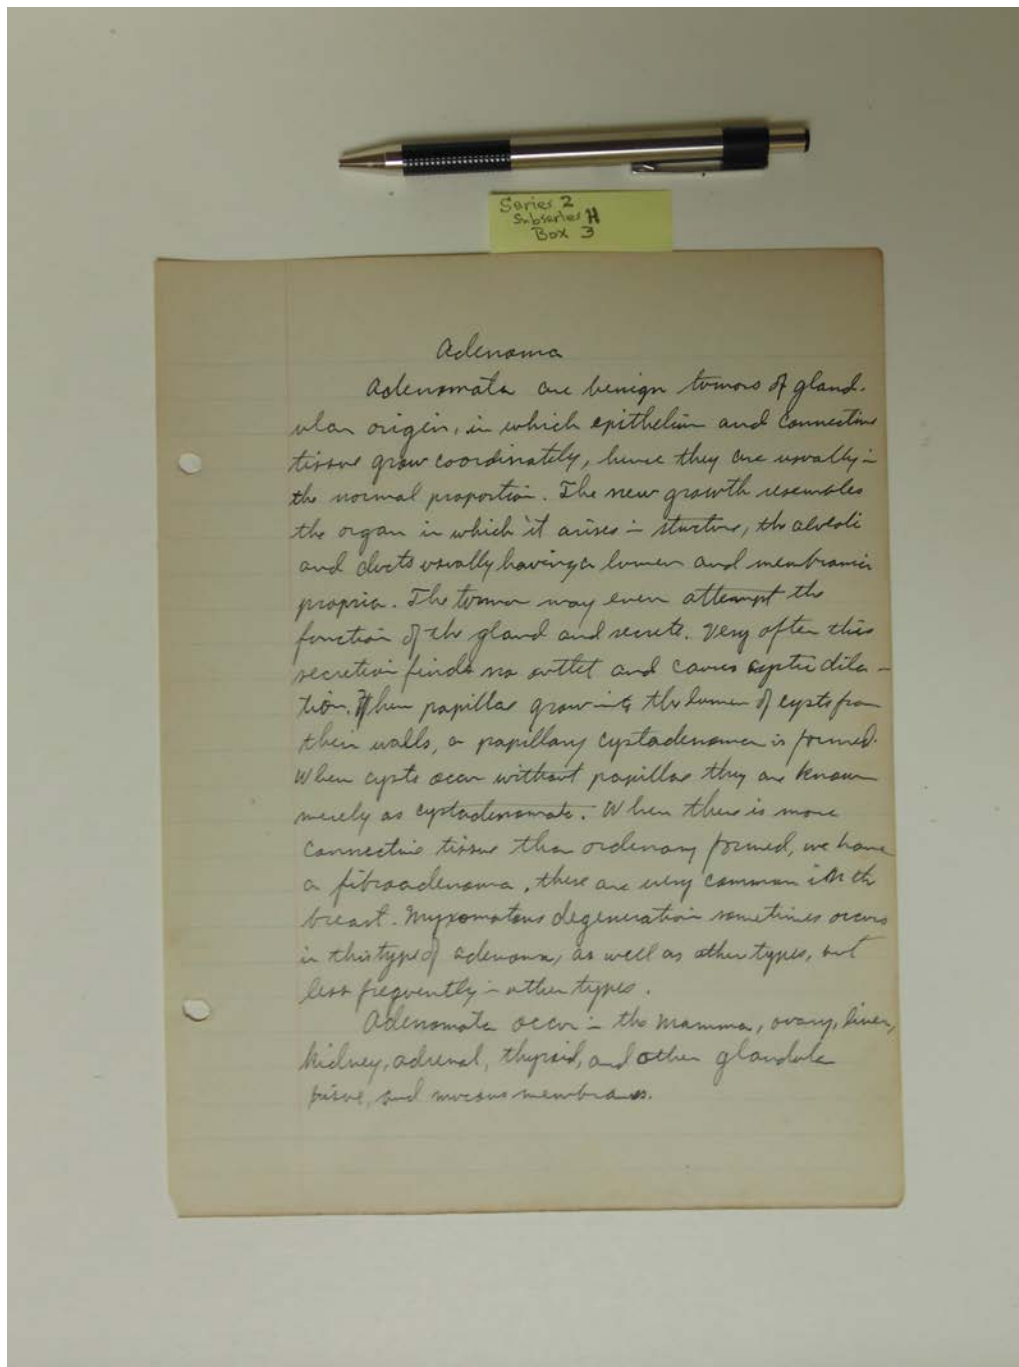 Series 2
Subseries H
Box 3
Adenoma
Adenomata are benign tumors of gland-
ular origin, in which epithelium and connective
tissue grow coordinately, hence they are usually in
the normal proportion. The new growth resembles
the organ in which it arises in structure, the alveoli
and ducts usually having a lumen and membrania
propria. The tumor may even attempt the
function of the gland and secrete. Very often this
secretion finds no outlet and causes cystic dila-
tion. When papillae grow into the lumen of cysts from
their walls, a papillary cystadenoma is formed.
When cysts occur without papillae they are known
merely as cystadenomata. When there is more
connective tissue than ordenary formed, we have
a fibroadenoma, these are very common in th
breast. Myxomatous degeneration sometimes occurs
in this type of adenoma, as well as other types, but
less frequently in other types.
Adenomata occur in the mamma, ovary, liver,
kidney, adrenal, thyroid, and other glandula
tissue, and mucous membranes.